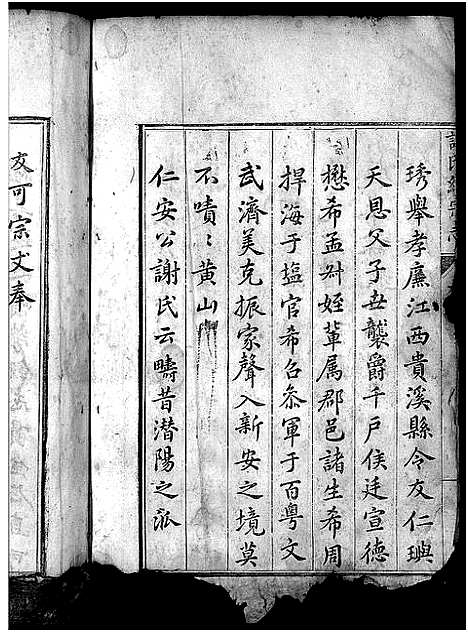 琇舉孝廉江西貴溪縣令友仁璵
天恩父子丗襲爵千戶侯廷宣德
懋希孟舛姪輩属郡邑諸生希周
捍海于塩官希召叅軍于百粤文
武濟美克振家聲入新安之境莫
不嘖〻黄山
仁安公謝氏云疇昔潜陽之泒
友可宗文奉